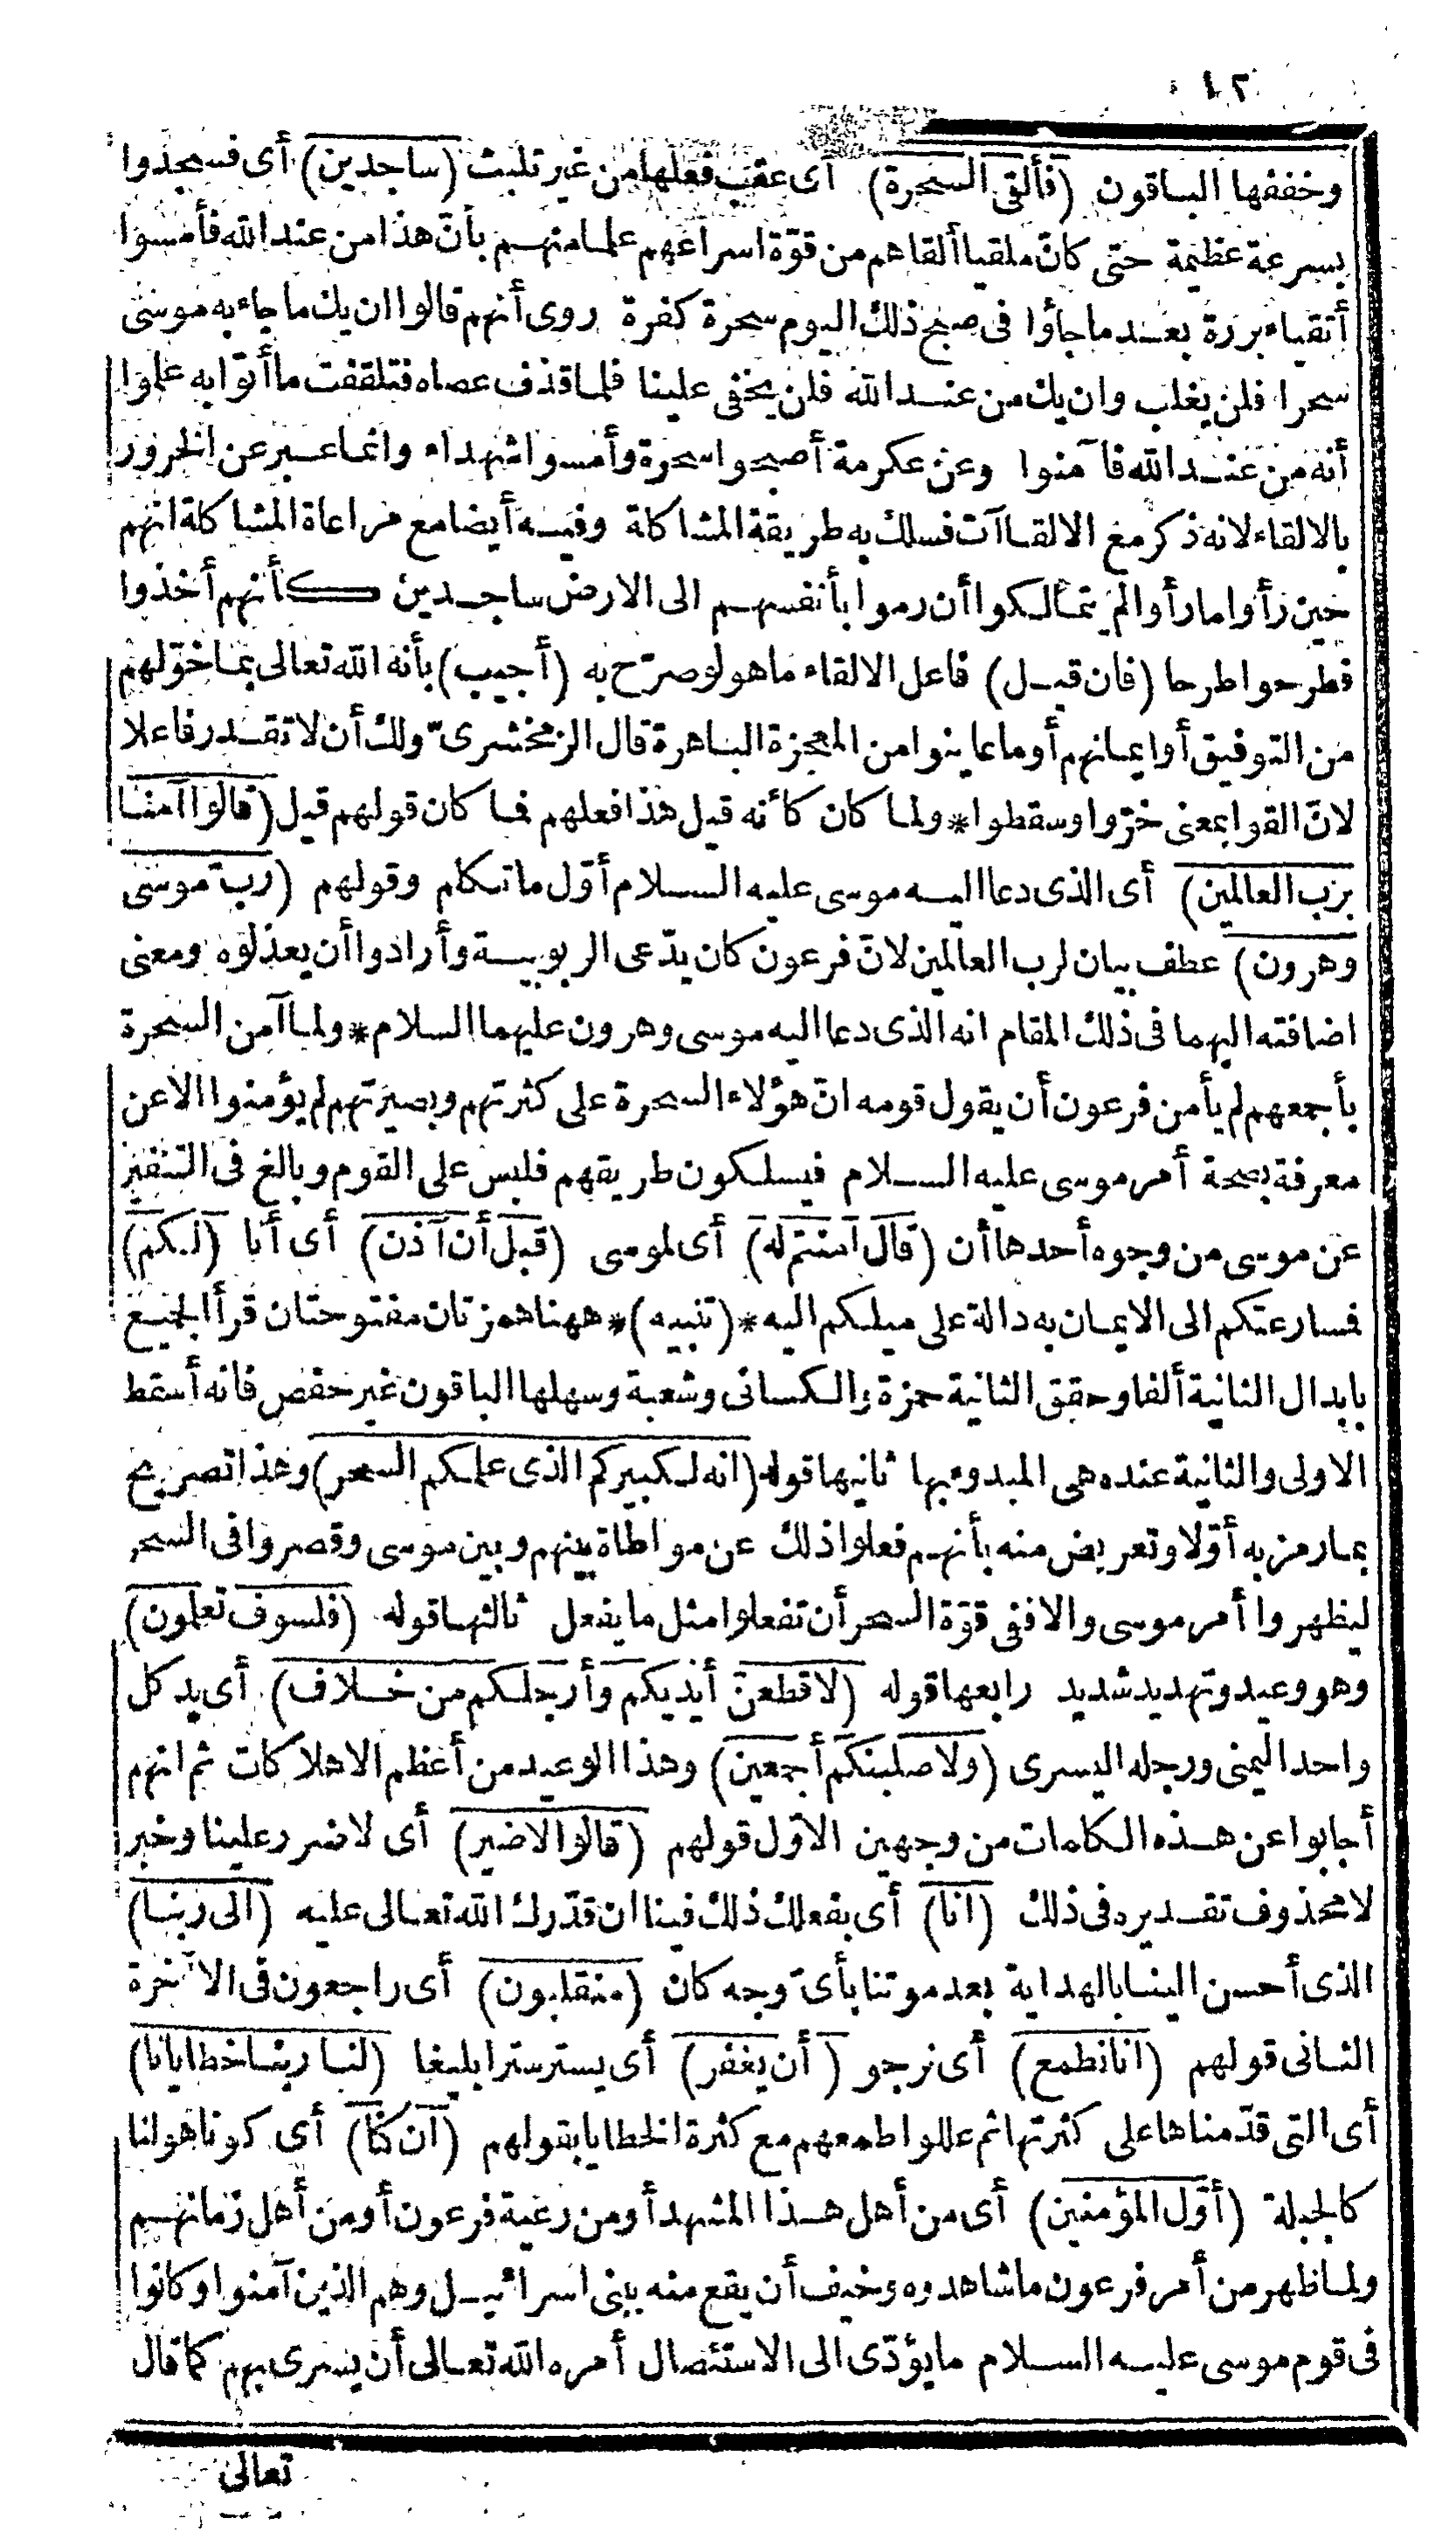 ٤٢
وخففها الباقون (فألقى السحرة) أى عقب فعلها من غير تلبث (ساجدين) أى فسجدوا
بسرعة عظيمة حتى كأنّ ملقيا ألقاهم من قوّة اسراعهم علما منهم بأنّ هذا من عند الله فأمسوا
أتقياء بررة بعد ما جاؤا فى صبح ذلك اليوم سحرة كفرة روى أنهم قالوا ان يك ما جاء به موسى
سحرا فلن يغلب وان يك من عند الله فلن يخفى علينا فلما قذف عصاه فتلقفت ما أتوا به علموا
أنه من عند الله فآمنوا وعن عكرمة أصبحوا سحرة وأمسوا شهداء وانما عبر عن الخرور
بالالقاء لانه ذكر مع الالقاآت فسلك به طريقة المشاكلة وفيه أيضا مع مراعاة المشاكلة انهم
حين رأوا ما رأوا لم يتمالكوا أن رموا بأنفسهم الى الارض ساجدين كأنهم أخذوا
فطرحوا طرحا (فان قيل) فاعل الالقاء ما هو لو صرّح به (أجيب) بأنه الله تعالى بما خوّلهم
من التوفيق أو ايمانهم أو ما عاينوا من المعجزة الباهرة قال الزمخشرىّ ولك أن لا تقدر فاعلا
لانّ القوا بمعنى خرّوا وسقطوا * ولما كان كأنه قيل هذا فعلهم فما كان قولهم قيل (قالوا آمنا
برب العالمين) أى الذى دعا اليه موسى عليه السلام أوّل ما تكلم وقولهم (رب موسى
وهرون) عطف بيان لرب العالمين لانّ فرعون كان يدّعى الربوبية وأرادوا أن يعذلوه ومعنى
اضافته اليهما فى ذلك المقام انه الذى دعا اليه موسى وهرون عليهما السلام * ولما آمن السحرة
بأجمعهم لم يأمن فرعون أن يقول قومه انّ هؤلاء السحرة على كثرتهم وبصيرتهم لم يؤمنوا الا عن
معرفة بصحة أمر موسى عليه السلام فيسلكون طريقهم فلبس على القوم وبالغ فى التنفير
عن موسى من وجوه أحدها أن (قال آمنتم له) أى لموسى (قبل أن آذن) أى أنا (لكم)
فسارعتكم الى الايمان به دالة على ميلكم اليه * (تنبيه) * ههنا همزتان مفتوحتان قرأ الجميع
بابدال الثانية ألفا وحقق الثانية حمزة والكسائى وشعبة وسهلها الباقون غير حفص فانه أسقط
الاولى والثانية عنده هى المبدوء بها ثانيها قوله (انه لكبيركم الذى علمكم السحر) وهذا تصريح
بما رمز به أوّلا وتعريض منه بأنهم فعلوا ذلك عن مواطاة بينهم وبين موسى وقصروا فى السحر
ليظهروا أمر موسى والا ففى قوّة السحر أن تفعلوا مثل ما يفعل ثالثها قوله (فلسوف تعلمون)
وهو وعيد وتهديد شديد رابعها قوله (لاقطعنّ أيديكم وأرجلكم من خلاف) أى يد كل
واحد اليمنى ورجله اليسرى (ولاصلبنكم أجمعين) وهذا الوعيد من أعظم الاهلاكات ثم انهم
أجابوا عن هذه الكلمات من وجهين الاوّل قولهم (قالوا لاضير) أى لا ضرر علينا وخبر
لا محذوف تقديره فى ذلك (انا) أى بفعلك ذلك فينا ان قدّرك الله تعالى عليه (الى ربنا)
الذى أحسن الينا بالهداية بعد موتنا بأىّ وجه كان (منقلبون) أى راجعون فى الآخرة
الثانى قولهم (انا نطمع) أى نرجو (أن يغفر) أى يستر سترا بليغا (لنا ربنا خطايانا)
أى التى قدّمناها على كثرتها ثم عللوا طمعهم مع كثرة الخطايا بقولهم (أن كنا) أى كونا هو لنا
كالجبلة (أوّل المؤمنين) أى من أهل هذا المشهد أو من رعية فرعون أو من أهل زمانهم
ولما ظهر من أمر فرعون ما شاهدوه وخيف أن يقع منه ببنى اسرائيل وهم الذين آمنوا وكانوا
فى قوم موسى عليه السلام ما يؤدّى الى الاستئصال أمره الله تعالى أن يسرى بهم كما قال
تعالى